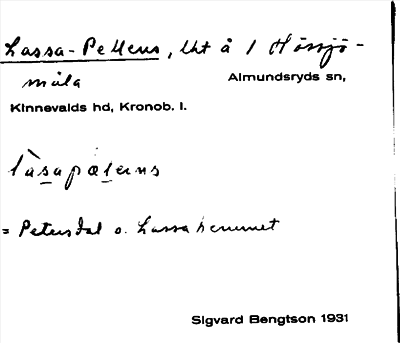 Lassa-Pellens, lht å 1 Hössjö-
måla Almundsryds sn,
Kinnevalds hd, Kronob. l.
làsapæterns
= Petersdal o. Lassahemmet
Sigvard Bengtson 1931